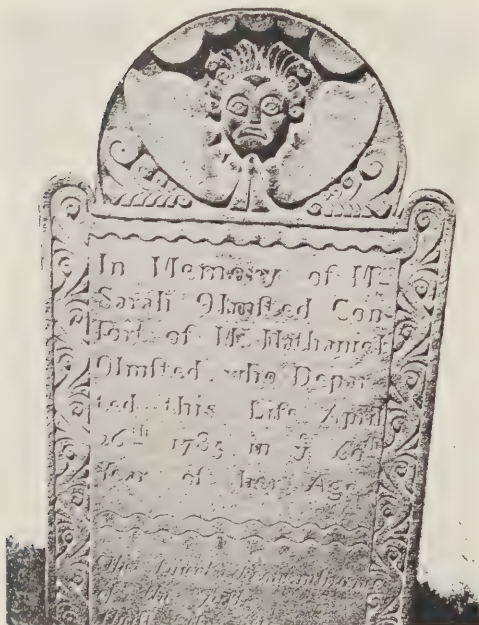 In Memory of Mrs
Sarah Olmsted Con-
sort of Mr Nathaniel
Olmsted who Depar-
ted this Life April
26th 1785 in ye
Year of her Age
The
of the Just